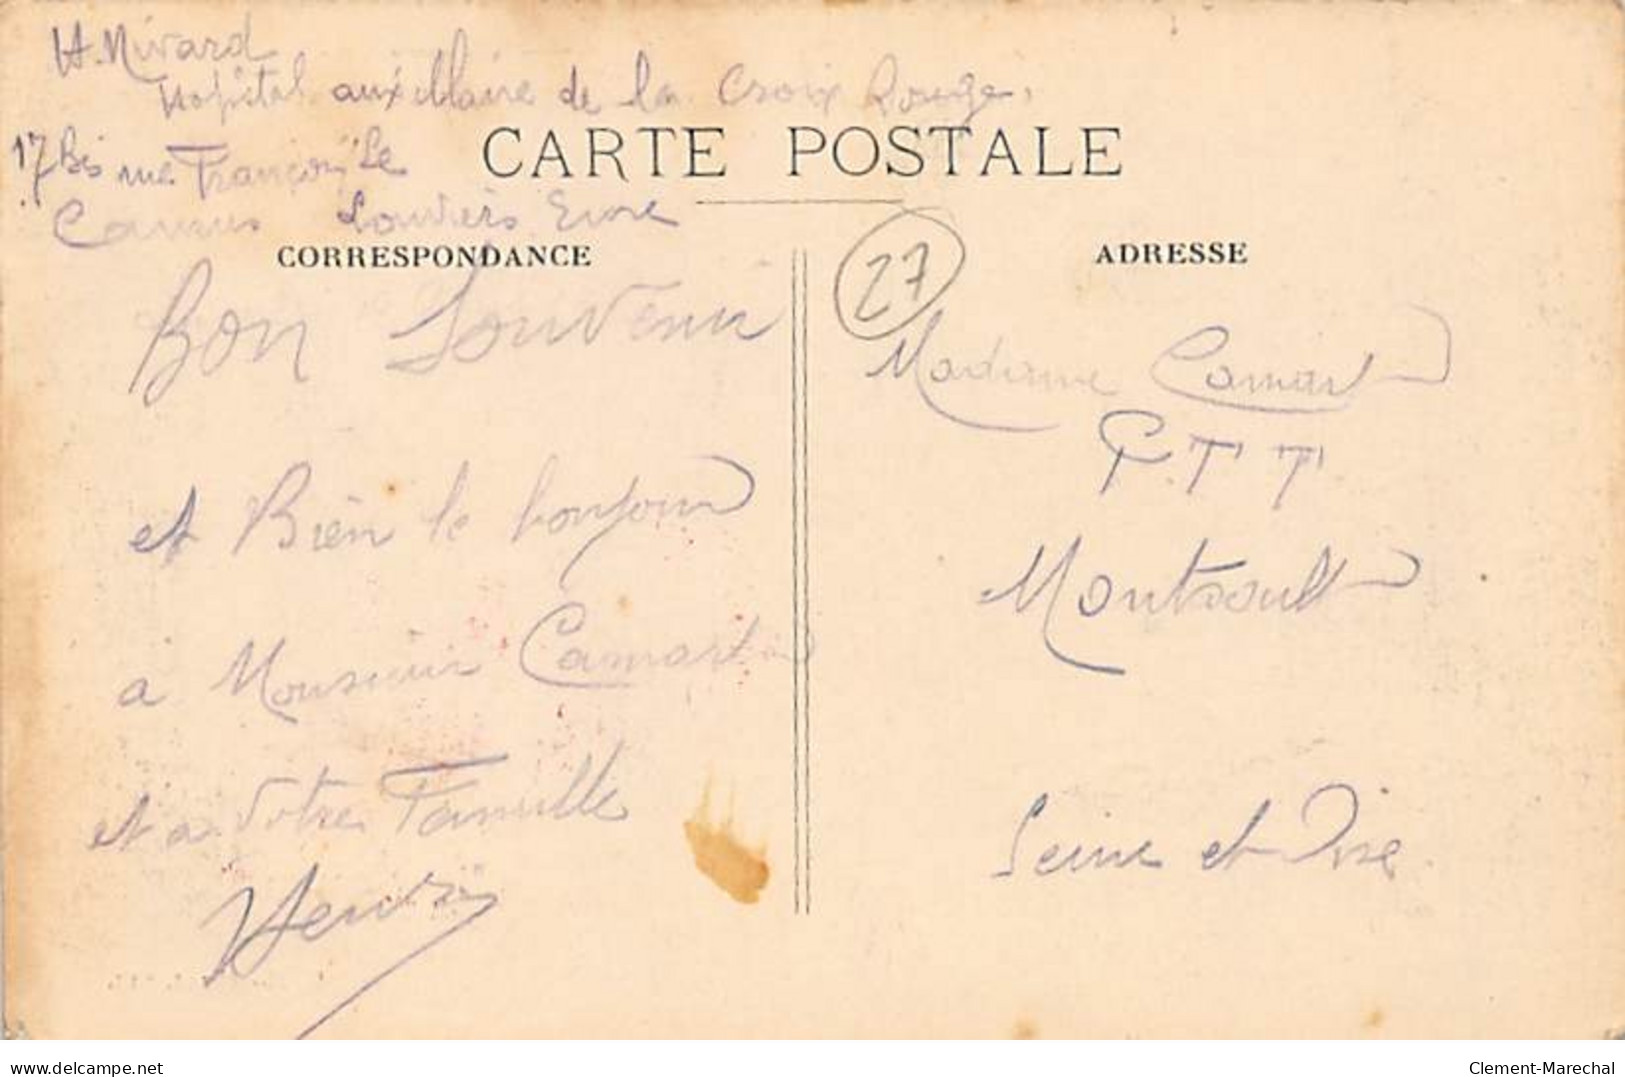 H. Nivard
Hopital auxillaire de la Croix Rouge,
17 bis rue François Le
Camus Louviers Eure
CARTE POSTALE
CORRESPONDANCE
ADRESSE
27
Bon Souvenir
et Bien le bonjour
à Monsieur Camart
et a Votre Famille
Henri
Madame Camart
P.T.T.
Montsoult
Seine et Oise
www.delcampe.net
Clement-Marechal